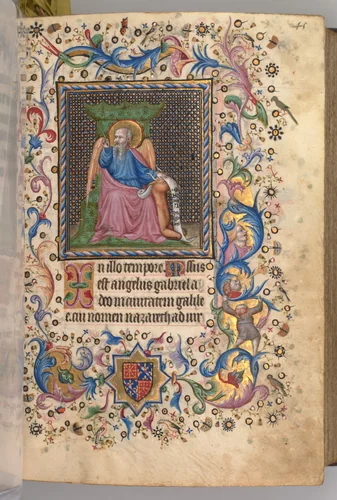 In illo tempore. Missus
est angelus gabriel a
deo in civitatem galilee
cui nomen nazareth ad vir